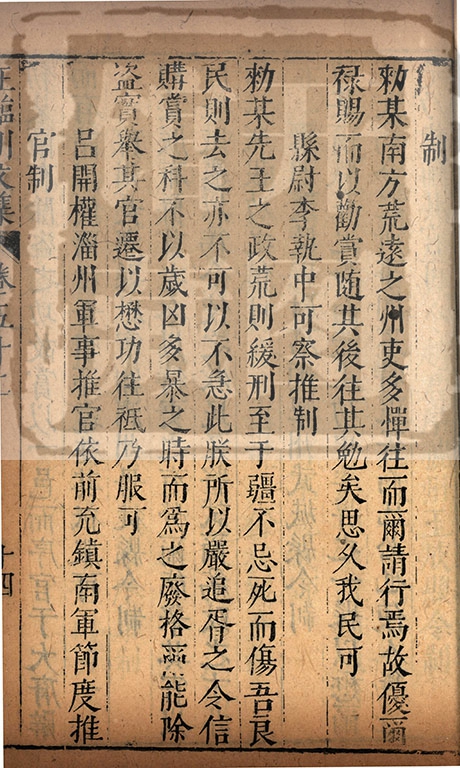 制
勑某南方荒遠之州吏多憚往而爾請行焉故優爾
祿賜而以勸賞随其後往其勉矣思乂我民可
縣尉李執中可察推制
勑某先王之政荒則緩刑至于疆不忌死而傷吾良
民則去之亦不可以不急此朕所以嚴追胥之令信
購賞之科不以歲凶多暴之時而爲之廢格爾能除
盜實舉其官遷以懋功往祗乃服可
呂開權淄州軍事推官依前充鎮南軍節度推
官制
王臨川文集 卷之五十二 十四